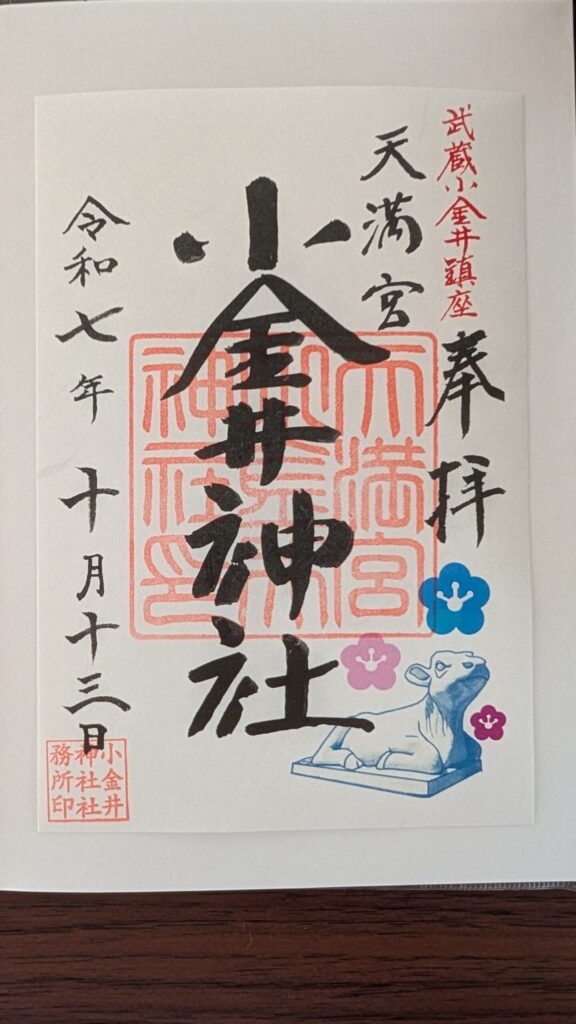 武蔵小金井鎮座
奉拝
天満宮
小金井神社
令和七年十月十三日
小金井
神社社
務所印